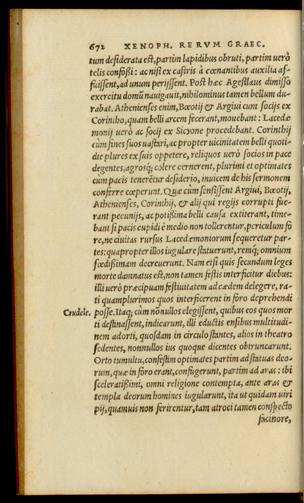 672 XENOPH. RERVM GRAEC.
tum desiderata est, partim lapidibus obruti, partim uerò
telis confoßi: ac nisi ex castris à cœnantibus auxilia af-
fuissent, ad unum perissent. Post hæc Agesilaus dimisso
exercitu domũ nauigauit, nihilominus tamen bellum du-
rabat. Athenienses enim, Bœotij & Argiui cum socijs ex
Corintho, quam belli arcem fecerant, mouebant: Lacedæ
monij uerò ac socij ex Sicyone procedebant. Corinthij
cùm fines suos uastari, ac propter uicinitatem belli quoti-
die plures ex suis oppetere, reliquos uerò socios in pace
degentes, agrosq; colere cernerent, plurimi et optimates
cùm pacis tenerẽtur desiderio, inuicem de his sermonem
conferre cœperunt. Quæ cùm sensissent Argiui, Bœotij,
Athenienses, Corinthij, & alij qui regijs corrupti fue-
rant pecunijs, ac potißima belli causa extiterant, time-
bant si pacis cupidi è medio non tollerentur, periculum fo
re, ne ciuitas rursus Lacedæmoniorum sequeretur par-
tes: quapropter illos iugulare statuerunt, remq; omnium
fœdißimam decreuerunt. Nam etsi quis secundum leges
morte damnatus est, non tamen festis interficitur diebus:
illi uerò præcipuam festiuitatem ad cædem delegere, ra-
ti quamplurimos quos interficerent in foro deprehendi
Crudele. posse. Itaq; cùm nõnullos elegissent, quibus eos quos mor
ti destinassent, indicarunt, illi eductis ensibus multitudi-
nem adorti, quosdam in circulo stantes, alios in theatro
sedentes, nonnullos ius quoque dicentes obtruncarunt.
Orto tumultu, confestim optimates partim ad statuas deo-
rum, quæ in foro erant, confugerunt, partim ad aras: ibi
sceleratißimi, omni religione contempta, ante aras &
templa deorum homines iugularunt, ita ut quidam uiri
pij, quamuis non ferirentur, tam atroci tamen conspecto
facinore,